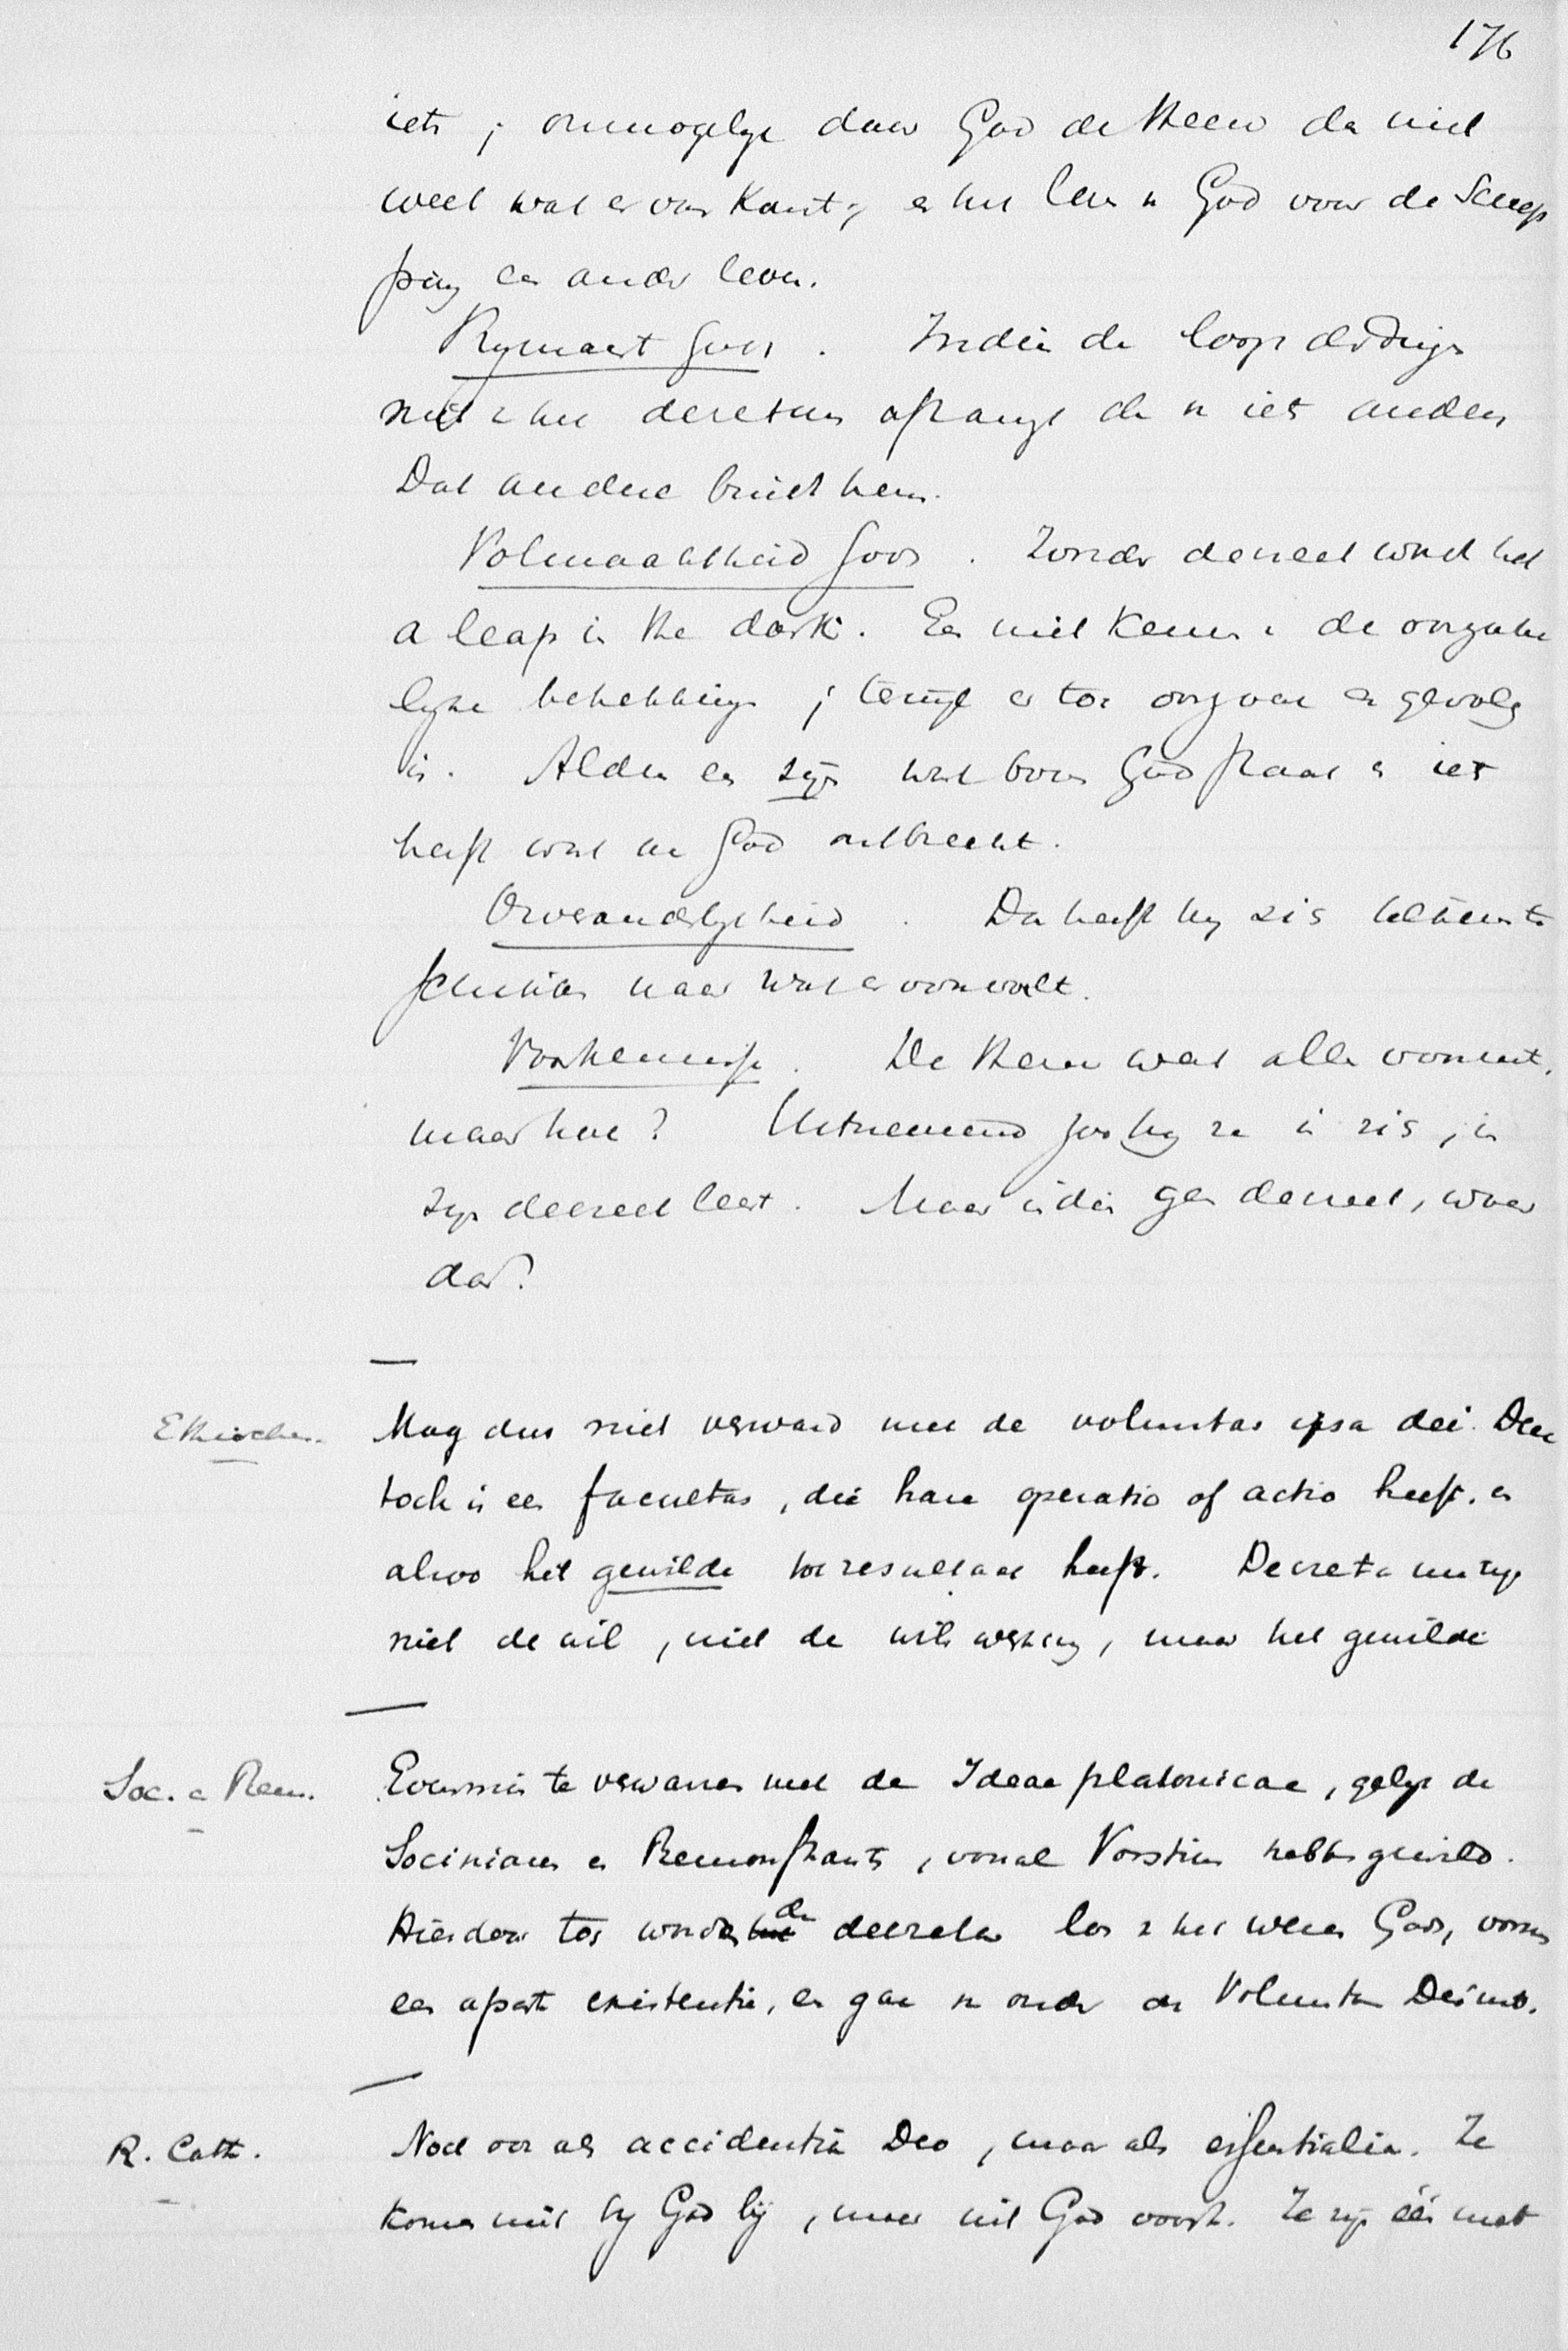 176
iets ; onmogelyk daar God de Heere da niet
weet wat er van komt ; en het leven in God voor de Schep
ping een ander leven.
Rijmacht Gods . Indien de loop der dingen
niet het decretum afhangt dan in iets anders
Dat andere bindt hem.
Volmaaktheid Gods . Zonder decreet word het
a leap in the dark. Een niet kennen de
lyke betrekking ; terwyl er toe oorzaak en gevolg
is. Alden een zyn wat boven God staat en iets
heeft wat in God ontbreekt.
Onveranderlykheid . Dan heeft hy zich telkens te
schikken naar wat er voorvalt.
Voorkennisse . De Heere weet alle
maar hoe ? Uitnemend zoo hy ze in zich , in
zyn decreet leest . Maar indien geen decreet , waar
dan ?
Ethischen. Mag dus niet verward met de voluntas ipsa dei. Deze
toch is een facultas , die hare operatio of actio heeft. en
alzoo het gewilde tot resultaat heeft. Decreta nu zyn
niet de wil , niet de wilswerking , maar het gewilde
Soc. en Rem. Evenmin te verwarren met de Ideae platonicae , gelyk de
Socinianen en Remonstrants , vooral Vorstius hebben gewild.
Hierdoor toch worden de decreta los v het wezen Gods, vormen
een apart existentie, en gaan in onder de Voluntas Dei
R. Cath. Noch ook als accidentia Deo , maar als essentialia. Ze
komen niet by God bij , maar uit God voort. Ze zyn één met